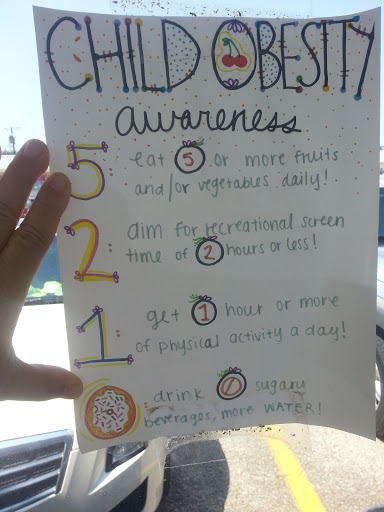 CHILD OBESITY
awareness
5: eat 5 or more fruits
and/or vegetables daily!
2: aim for recreational screen
time of 2 hours or less!
1: get 1 hour or more
of physical activity a day!
0: drink 0 sugary
beverages, more WATER!